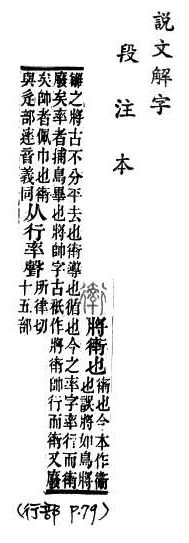 說文解字
段注本
𧗿 將𧗿也
𧗿也今本作衞
也誤將如鳥將
雛之將古不分平去也𧗿導也循也今之率字率行而𧗿
廢矣率者捕鳥畢也將帥字古祗作將𧗿帥行而𧗿又廢
矣帥者佩巾也𧗿
與辵部䢦音義同
从行率聲
所律切
十五部
(行部 P.79)